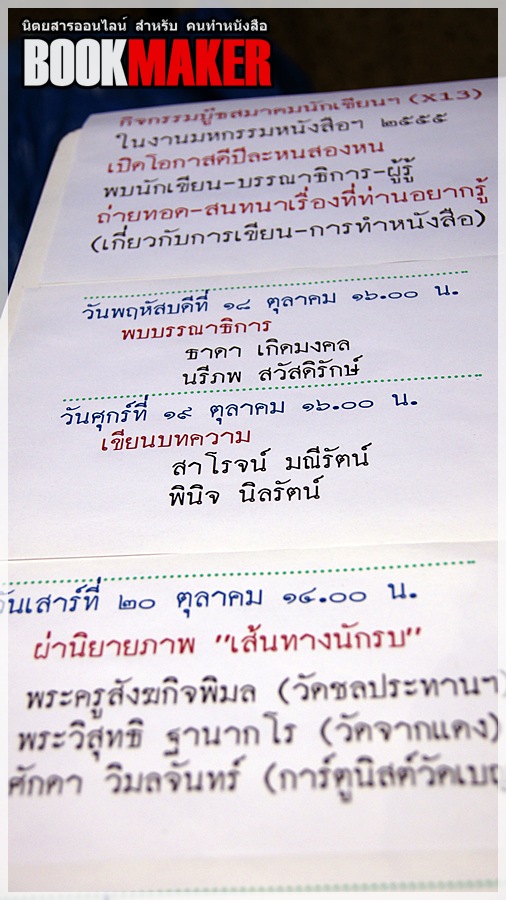 นิตยสารออนไลน์ สำหรับ คนทำหนังสือ
BOOKMAKER
กิจกรรมบู๊ธสมาคมนักเขียนฯ (X13)
ในงานมหกรรมหนังสือฯ ๒๕๕๕
เปิดโอกาสดีปีละหนสองหน
พบนักเขียน-บรรณาธิการ-ผู้รู้
ถ่ายทอด-สนทนาเรื่องที่ท่านอยากรู้
(เกี่ยวกับการเขียน-การทำหนังสือ)
วันพฤหัสบดีที่ ๑๘ ตุลาคม ๑๖.๐๐ น.
พบบรรณาธิการ
ธาดา เกิดมงคล
นรีภพ สวัสดิรักษ์
วันศุกร์ที่ ๑๙ ตุลาคม ๑๖.๐๐ น.
เขียนบทความ
สาโรจน์ มณีรัตน์
พินิจ นิลรัตน์
วันเสาร์ที่ ๒๐ ตุลาคม ๑๔.๐๐ น.
ผ่านิยายภาพ "เส้นทางนักรบ"
พระครูสังฆกิจพิมล (วัดชลประทานฯ)
พระวิสุทธิ ฐานากโร (วัดจากแดง)
ศักดา วิมลจันทร์ (การ์ตูนิสต์วัดเบญ